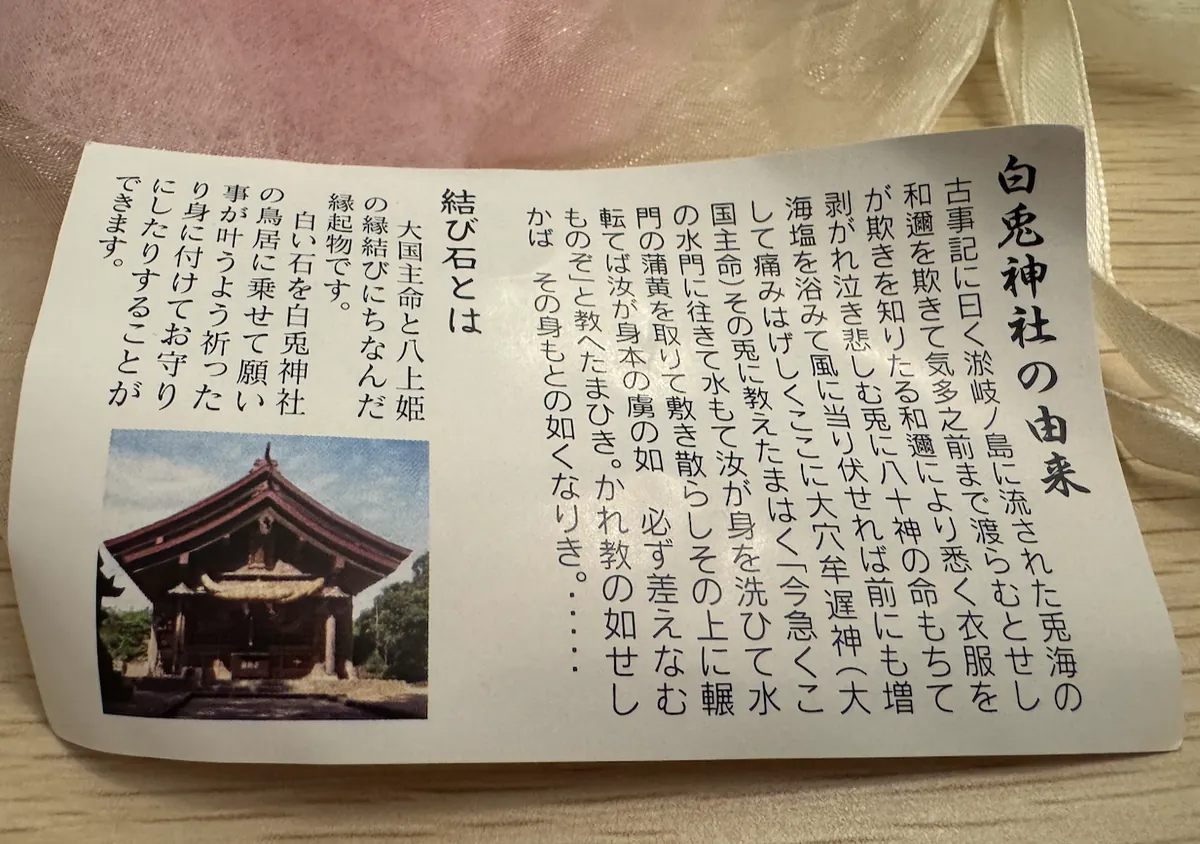 白兎神社の由来
古事記に曰く淤岐ノ島に流された兎海の
和邇を欺きて気多之前まで渡らむとせし
が欺きを知りたる和邇により悉く衣服を
剥がれ泣き悲しむ兎に八十神の命もちて
海塩を浴みて風に当り伏せれば前にも増
して痛みはげしくここに大穴牟遅神(大
国主命)その兎に教えたまはく「今急くこ
の水門に往きて水もて汝が身を洗ひて水
門の蒲黄を取りて敷き散らしその上に輾
転てば汝が身本の膚の如 必ず差えなむ
ものぞ」と教へたまひき。かれ教の如せし
かば その身もとの如くなりき。・・・・・
結び石とは
大国主命と八上姫
の縁結びにちなんだ
縁起物です。
白い石を白兎神社
の鳥居に乗せて願い
事が叶うよう祈った
り身に付けてお守り
にしたりすることが
できます。